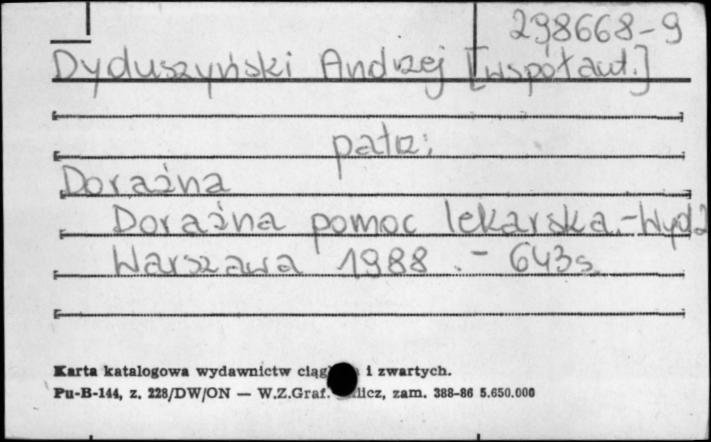 298668-9
Dyduszyński Andrzej [współaut.]
patrz:
Doraźna
Doraźna pomoc lekarska.-Wyd2
Warszawa 1988 .- 643s
Karta katalogowa wydawnictw i zwartych.
Pu-B-144, z. 228/DW/ON — W.Z.Graf. zam. 388-86 5.650.000